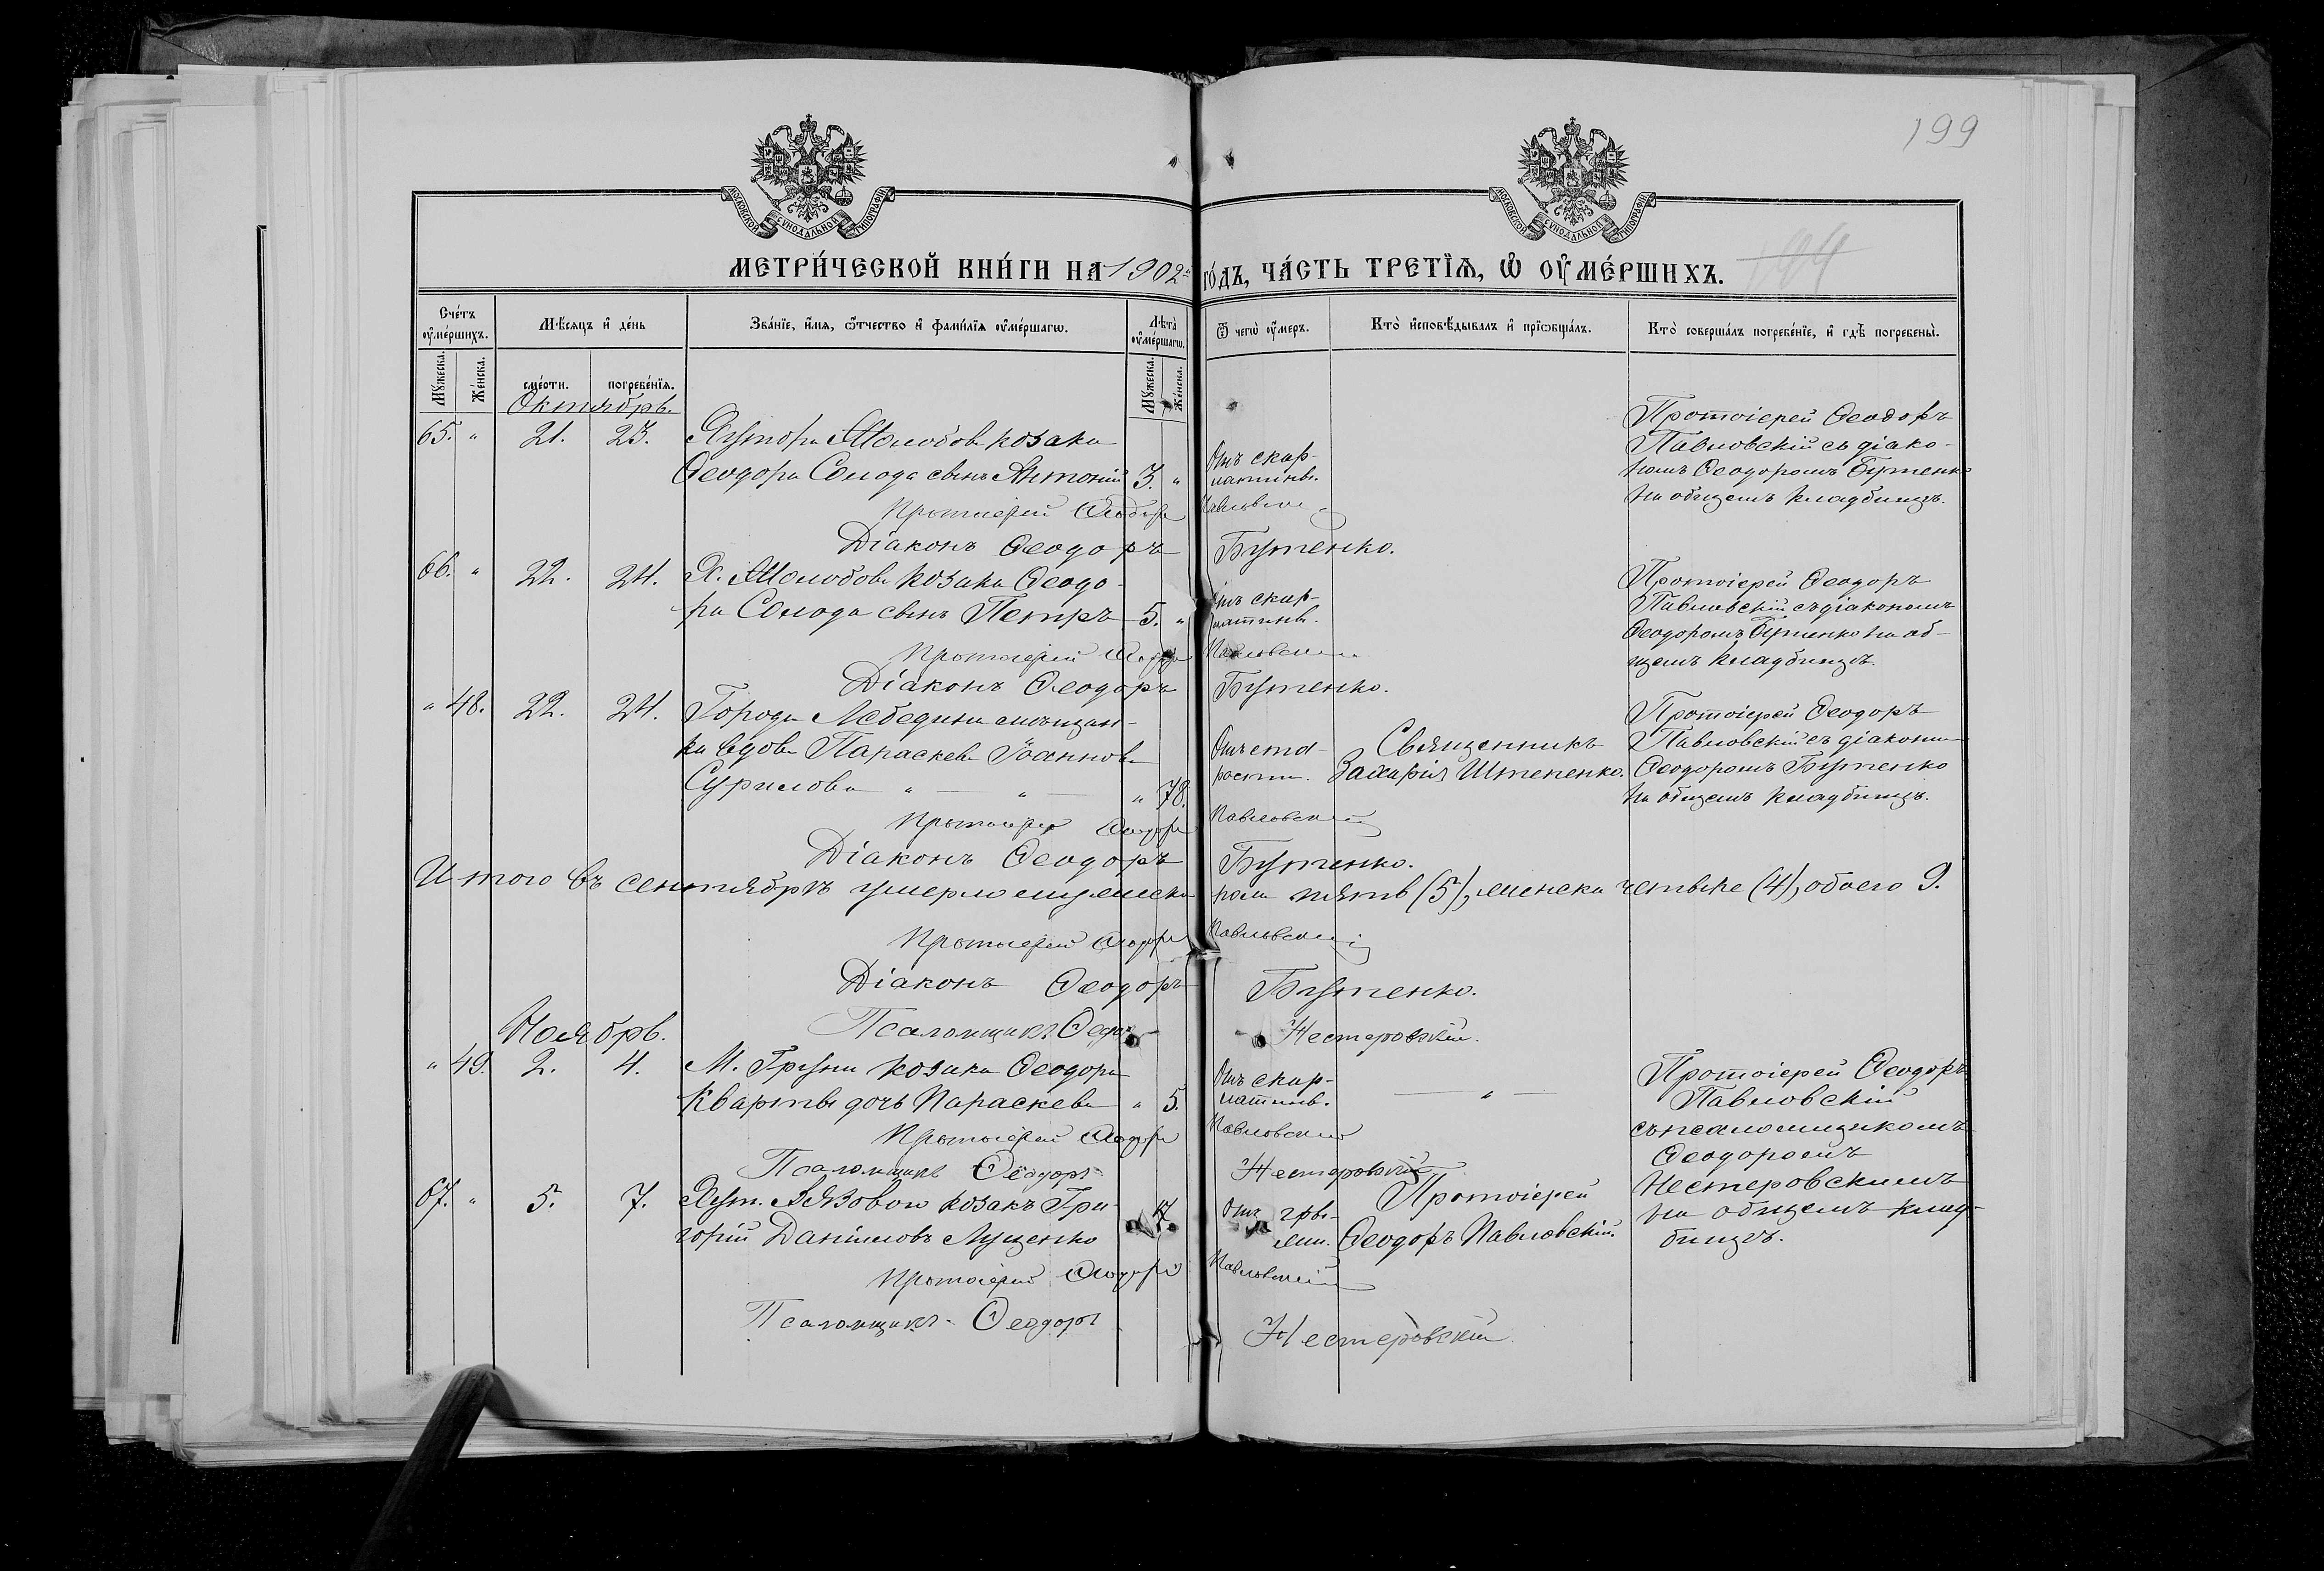 199
МОСКОВСКОЙ СУНОДАЛЬНОЙ ТИПОГРАФІИ
МОСКОВСКОЙ СУНОДАЛЬНОЙ ТИПОГРАФІИ
МЕТРИ́ЧЕСКОЙ КНИ́ГИ НА 1902й го́дъ, ча́сть третїѧ, ѡ оу҆ме́ршихъ.
Сче́тъ оу҆ме́ршихъ.
Мѣ́сѧцъ и҆ де́нь
Зва́нїе, и҆́мѧ, ѻ҆́тчество и҆ фами́лїѧ оу҆ме́ршагѡ.
Лѣ́та оу҆ме́ршагѡ.
Ѿ чегѡ̀ оу҆́меръ.
Кто̀ и҆сповѣ́дывалъ и҆ прїѡбща́лъ.
Кто̀ соверша́лъ погребе́нїе, и҆ гдѣ̀ погребены̀.
Мꙋ́жеска. Же́нска.
сме́рти. погребе́нїѧ.
Мꙋ́жеска. Же́нска.
Октябрь.
65. " 21. 23. Хутора Молобова козака
Ѳеодора Солода сынъ Антоній 3. "
Отъ скар-
латины.
Протоіерей Ѳеодоръ
Павловскій съ діако-
номъ Ѳеодоромъ Бутенко
на общемъ кладбищѣ.
Протоіерей Ѳеодоръ Павловскій
Діаконъ Ѳеодоръ Бутенко.
66. " 22. 24. Х. Молобова козака Ѳеодо-
ра Солода сынъ Петръ 5. "
Отъ скар-
латины.
Протоіерей Ѳеодоръ
Павловскій съ діакономъ
Ѳеодоромъ Бутенко на об-
щемъ кладбищѣ.
Протоіерей Ѳеодоръ Павловскій
Діаконъ Ѳеодоръ Бутенко.
" 48. 22. 24. Города Лебедина мѣщан-
ка вдова Параскева Іоаннова
Сурилова " " " 78.
Отъ ста-
рости.
Священникъ
Захарія Штепенко.
Протоіерей Ѳеодоръ
Павловскій съ діакономъ
Ѳеодоромъ Бутенко
на общемъ кладбищѣ.
Протоіерей Ѳеодоръ Павловскій
Діаконъ Ѳеодоръ Бутенко.
Итого въ сентябрѣ умерло мужеска пола пять (5), женска четыре (4), обоего 9.
Протоіерей Ѳеодоръ Павловскій
Діаконъ Ѳеодоръ Бутенко.
Псаломщикъ Ѳеодоръ Нестеровскій.
Ноябрь.
" 49. 2. 4. М. Груни козака Ѳеодора
Кварты дочь Параскева " 5.
Отъ скар-
латины.
"
Протоіерей Ѳеодоръ
Павловскій
съ псаломщикомъ
Ѳеодоромъ
Нестеровскимъ
на общемъ клад-
бищѣ.
Протоіерей Ѳеодоръ Павловскій
Псаломщикъ Ѳеодоръ Нестеровскій
67. " 5. 7. Хут. Вязовой козакъ Гри-
горій Даніиловъ Луценко 17.
Отъ гры-
жи.
Протоіерей
Ѳеодоръ Павловскій.
Протоіерей Ѳеодоръ Павловскій
Псаломщикъ Ѳеодоръ Нестеровскій